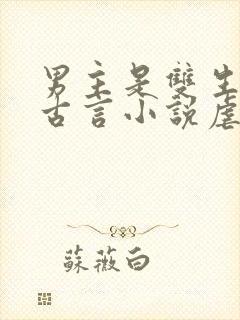 男主是雙生
古言小說虐
蘇薇白